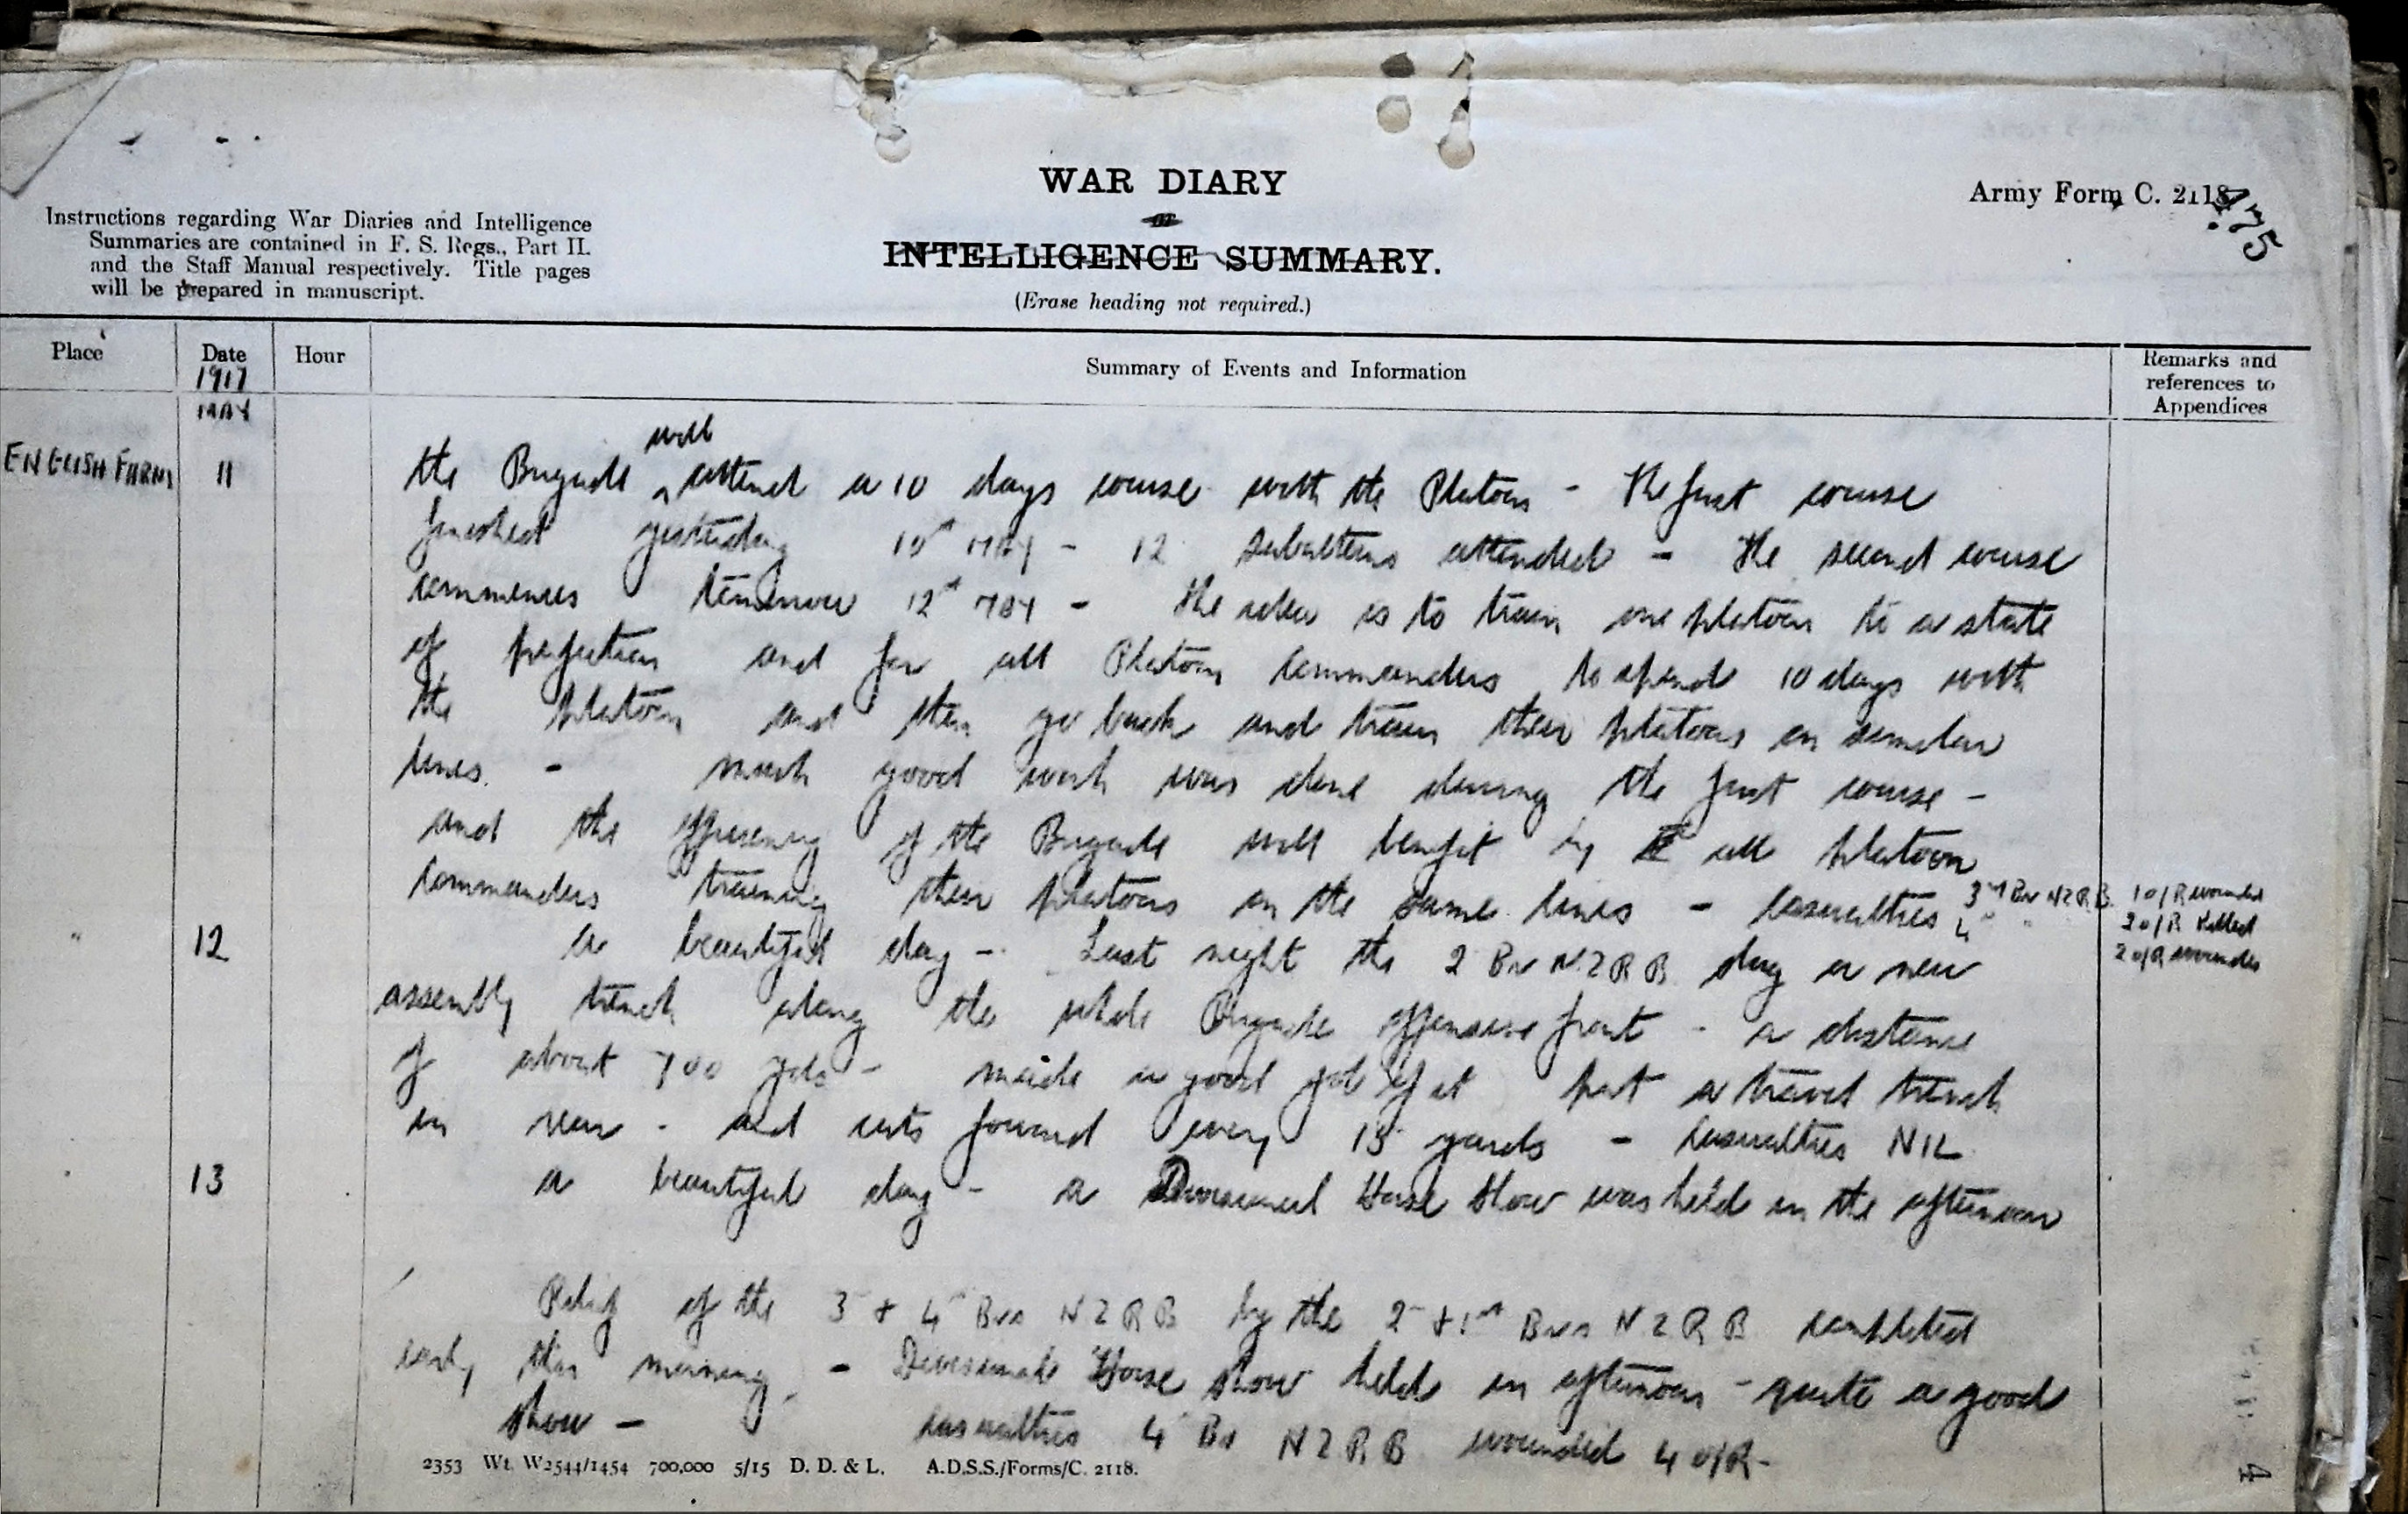 WAR DIARY
or
INTELLIGENCE SUMMARY.
(Erase heading not required.)
Army Form C. 2118
475
Instructions regarding War Diaries and Intelligence
Summaries are contained in F. S. Regs., Part II.
and the Staff Manual respectively. Title pages
will be prepared in manuscript.
Place
Date
1917
MAY
Hour
Summary of Events and Information
Remarks and
references to
Appendices
ENGLISH FARM 11
will
the Brigade ^ attend a 10 days course with the Platoon - The first course
finished yesterday 10th MAY - 12 subalterns attended - The second course
commences tomorrow 12th MAY - the idea is to train one platoon to a state
of perfection and for all Platoon Commanders to spend 10 days with
the platoon and then go back and train their platoons on similar
lines. - much good work was done during the first course -
and the efficiency of the Brigade will benefit by all platoon
commanders training their platoons on the same lines - Casualties 3rd Bn NZRB 1 o/R wounded
4 " " 2 o/R Killed
2 o/R wounded
" 12 a beautiful day - Last night the 2 Bn NZRB dug a new
assembly trench along the whole Brigade offensive front - a distance
of about 700 yds - made a good job of it put a travel trench
in rear - and cuts forward every 15 yards - Casualties NIL
13 a beautiful day - a Divisional Horse Show was held in the afternoon
Relief of the 3 & 4th Bns NZRB by the 2 & 1st Bns NZRB completed
early this morning - Divisional Horse show held in afternoon - quite a good
show - Casualties 4 Bn NZRB wounded 4 o/R -
2353 Wt. W2544/1454 700,000 5/15 D. D. & L. A.D.S.S./Forms/C. 2118.
4